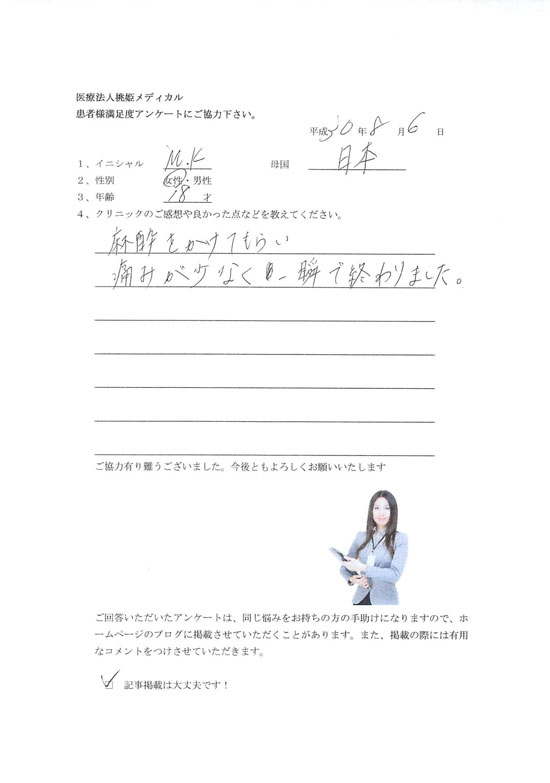 医療法人桃姫メディカル
患者様満足度アンケートにご協力下さい。
平成30年8月6日
1、イニシャル M.K 母国 日本
2、性別 女性・男性
3、年齢 18 才
4、クリニックのご感想や良かった点などを教えてください。
麻酔をかけてもらい
痛みが少なく一瞬で終わりました。
ご協力有り難うございました。今後ともよろしくお願いいたします
ご回答いただいたアンケートは、同じ悩みをお持ちの方の手助けになりますので、ホ
ームページのブログに掲載させていただくことがあります。また、掲載の際には有用
なコメントをつけさせていただきます。
記事掲載は大丈夫です！